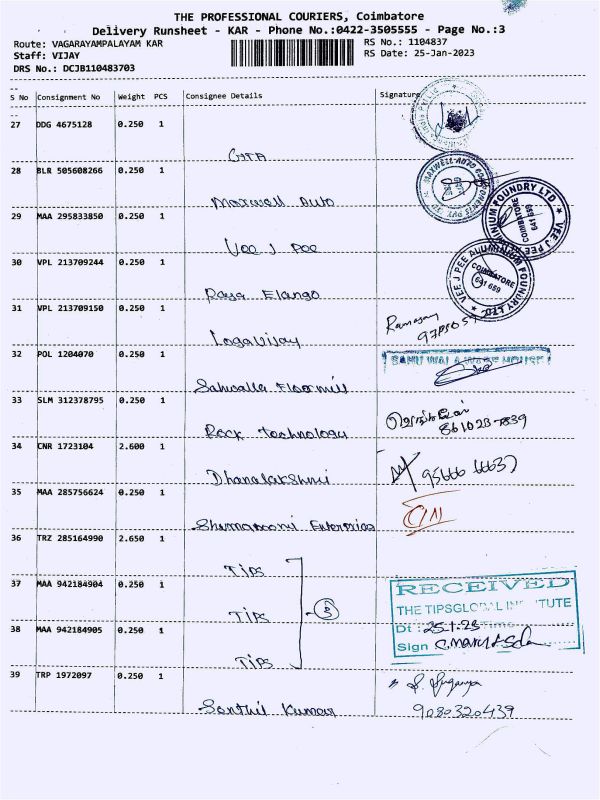 THE PROFESSIONAL COURIERS, Coimbatore
Delivery Runsheet - KAR - Phone No.:0422-3505555 - Page No.:3
Route: VAGARAYAMPALAYAM KAR RS No.: 1104837
Staff: VIJAY RS Date: 25-Jan-2023
DRS No.: DCJB110483703
S No Consignment No Weight PCS Consignee Details Signature
27 DDG 4675128 0.250 1
GTA
28 BLR 505608266 0.250 1
Maxwell Auto
29 MAA 295833850 0.250 1
Vee J Pee
30 VPL 213709244 0.250 1
Raya Elango
31 VPL 213709150 0.250 1
Logavijay
32 POL 1204070 0.250 1
Sahuwalla Floormill
33 SLM 312378795 0.250 1
Rock technology
34 CNR 1723104 2.600 1
Dhanalakshmi
35 MAA 285756624 0.250 1
36 TRZ 285164990 2.650 1
Tips
37 MAA 942184904 0.250 1
Tips
38 MAA 942184905 0.250 1
Tips
39 TRP 1972097 0.250 1
Santhil Kumar
MAXWELL AUTO
VEE J PEE ALUMINIUM FOUNDRY LTD
COIMBATORE
641 659
VEE J PEE ALUMINIUM FOUNDRY LTD
COIMBATORE
641 659
95666 66637
3
RECEIVED
THE TIPSGLOBAL INSTITUTE
Dt : 25.1.23 Time
Sign
S. Suganya
9080320439